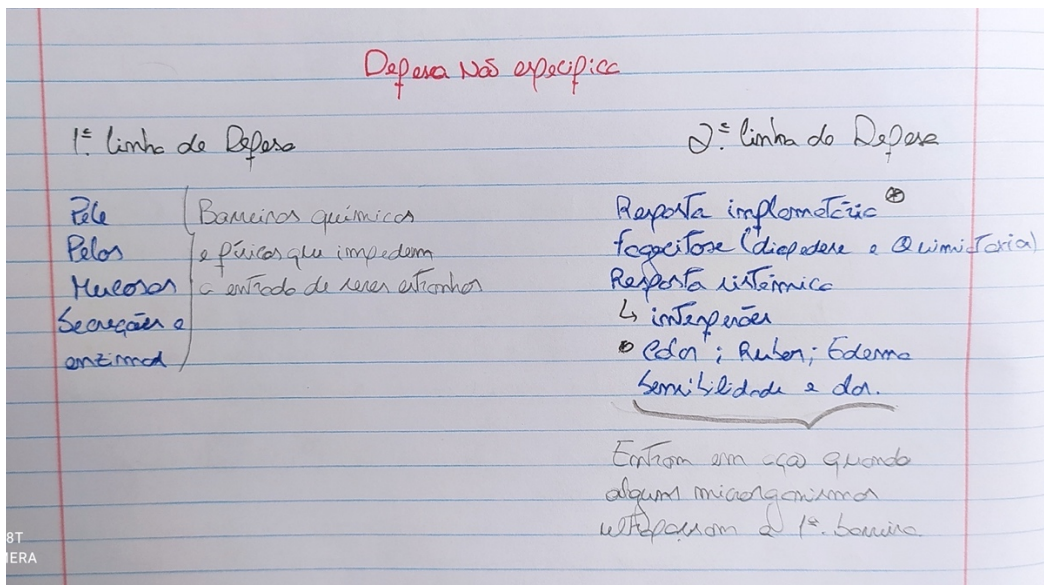 Defesa Não especifica
1ª linha de Defesa
Pele
Pelos
Mucosas
Secreções e
enzimas
Barreiras químicas
e físicas que impedem
a entrada de seres estranhos
2ª linha de Defesa
Resposta inflamatória *
fagocitose (diapedese e Quimiotaxia)
Resposta sistémica
↳ interferões
* Calor ; Rubor ; Edema
Sensibilidade e dor.
Entram em ação quando
alguns microrganismos
ultrapassam a 1ª. barreira
8T
MERA